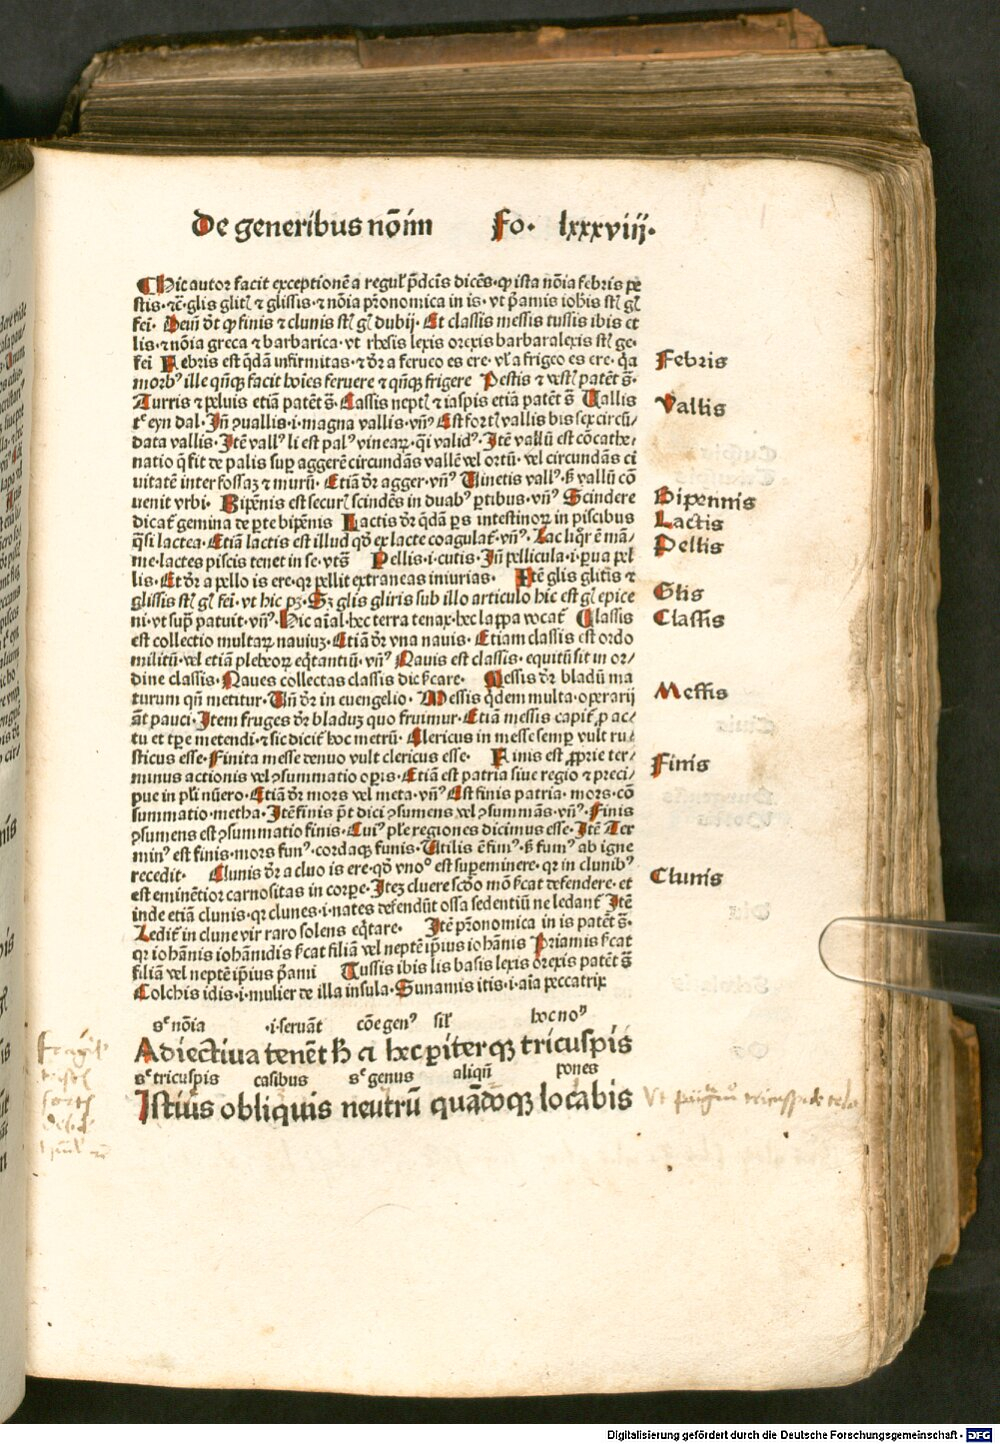 De generibus nōim Fo. lxxxviij.
Hic autor facit exceptionē a regul̕ p̄dcīs dicēs ꝙ ista nōia febris pe
stis ⁊c̄ glis glit̕ ⁊ glissis ⁊ nōia pr̄onomica in is vt p̄amis iobis st̕ g̕
fei. Dein̄ dt̄ ꝙ finis ⁊ clunis st̕ g̕ dubij. Et classis messis tussis ibis et
lis ⁊ nōia greca ⁊ barbarica vt rhesis lexis orexis barbaralexis st̕ ge
fei Febris est q̄dā infirmitas ⁊ dr̄ a ferueo es ere vl̕ a frigeo es ere q̄a
morbꝰ ille qn̄qꝫ facit hoīes feruere ⁊ qn̄qꝫ frigere Pestis ⁊ vest̕ patēt s̄.
Turris ⁊ peluis etiā patēt s̄. Cassis nept̕ ⁊ iaspis etiā patēt s̄ Vallis
Est fort̕ vallis bis sex circū/
data vallis. Itē vallꝰ li est palꝰ vinearꝝ qi validꝰ. Itē vallū est cōcathe/
natio q̄ fit de palis sup̄ aggerē circundās vallē vel ortū vel circundās ci
uitatē inter fossaz ⁊ murū. Etiā dr̄ agger vn̄ꝰ Vinetis vallꝰ ꝫ vallū cō
uenit vrbi. Bipēnis est secur̕ scindēs in duabꝰ ꝑtibus vn̄ꝰ Scindere
dicat̄ gemina de ꝑte bipēnis Lactis dr̄ q̄dā ꝑs intestinoꝝ in piscibus
q̄si lactea. Etiā lactis est illud qd̄ ex lacte coagulat̄ vn̄ꝰ. Lac liq̄r ē mā/
me lactes piscis tenet in se vtꝫ Pellis .i. cutis. In̄ pellicula .i. ꝑua pel
lis. Et dr̄ a pello is ere qr pellit extraneas iniurias. Itē glis glitis ⁊
glissis st̕ g̕ fei vt hic pꝫ. Sꝫ glis gliris sub illo articulo hic est g̕ epice
ni vt sup̄ patuit vn̄ꝰ. Hic aīal hec terra tenax hec lappa vocat̄ Classis
est collectio multarꝝ nauiuꝫ. Etiā dr̄ vna nauis. Etiam classis est ordo
militū vel etiā plebeorꝝ eq̄tantiū vn̄ꝰ Nauis est classis equitū sit in or/
dine classis. Naues collectas classis dic s̄care. Messis dr̄ bladū ma
turum qn̄ metitur. Vn̄ dr̄ in euangelio. Messis q̄dem multa operarij
aūt pauci. Item fruges dr̄ bladuꝫ quo fruimur. Etiā messis capit̄ ꝓ ac/
tu et tꝑe metendi ⁊ sic dicit̄ hoc metrū. Clericus in messe semꝑ vult ru/
sticus esse. Finita messe denuo vult clericus esse. Finis est ꝓprie ter/
minus actionis vel ꝯsummatio oꝑis. Etiā est patria siue regio ⁊ preci/
pue in pl̄i nūero. Etiā dr̄ mors vel meta vn̄ꝰ Est finis patria mors cō
summatio metha. Itē finis p̄t dici ꝯsumens vel ꝯsummās vn̄ꝰ. Finis
ꝯsumens est ꝯsummatio finis. Cuiꝰ pl̄e regiones dicimus esse. Itē Ter
minꝰ est finis mors funꝰ cordaqꝫ funis. Vtilis ē fimꝰ ꝫ fumꝰ ab igne
recedit. Clunis dr̄ a cluo is ere qd̄ vno° est suꝑeminere qr in clunibꝰ
est eminētior carnositas in corꝑe. Iteꝫ cluere scd̄o mō s̄cat defendere et
inde etiā clunis qr clunes .i. nates defendūt ossa sedentiū ne ledant̄ Itē
Ledit̄ in clune vir raro solens eq̄tare. Itē pr̄onomica in is patēt s̄.
qr iohānis iohānidis s̄cat filiā vel neptē ip̄ius iohānis Priamis s̄cat
filiā vel neptē ip̄ius p̄ami Tussis ibis lis basis lexis orexis patēt s̄
Colchis idis .i. mulier de illa insula. Sunamis itis .i. aīa peccatrix
Febris
Vallis
Bipennis
Lactis
Pellis
Glis
Classis
Messis
Finis
Clunis
sᶜ nōia .i. seruāt cōe genꝰ sil̕ hoc noꝰ
Adiectiua tenēt h̄ a hec pariterqꝫ tricuspis
sᶜ tricuspis casibus sᶜ genus aliqn̄ pones
Istius obliquis neutrū quādoqꝫ locabis